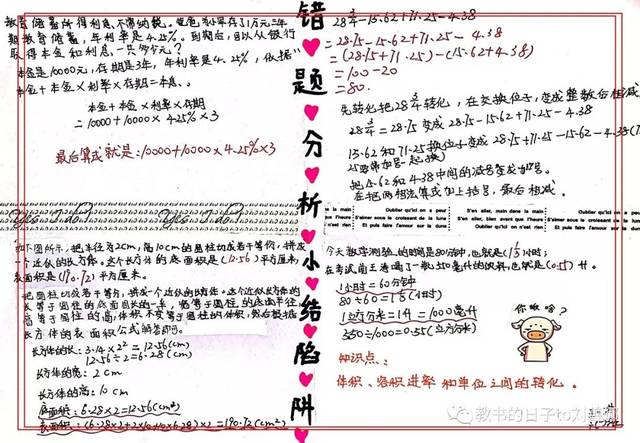 教育储蓄所得利息不需纳税。爸爸为小军存了1万元三年
期教育储蓄，年利率是4.25%。到期后，可以从银行
取得本金和利息，一共多少元？
本金是10000元，存期是3年，年利率是4.25%，依据
本金+本金×利率×存期=本息、。
本金+本金×利率×存期
=10000+10000×4.25%×3
最后算式就是:10000+10000×4.25%×3
错题分析小结陷阱
28¾-15.62+71.25-4.38
=28.75-15.62+71.25-4.38
=(28.75+71.25)-(15.62+4.38)
=100-20
=80.
先转化把28¾转化，在交换位子，变成整数后相减
28¾=28.75变成28.75-15.62+71.25-4.38
15.62和71.25换位子变成28.75+71.25-15.62-4.38
把15.62和4.38中间的减号变成加号。
在把两相法算式加上括号，最后相减。
Yes I do! Yes I do!
如下图所示，把半径为2cm，高10cm的圆柱切成若干等份，拼成
一个近似的长方体。这个长方体的底面积是(12.56)平方厘米，
表面积是(190.72)平方厘米。
把圆柱切成若干等分，拼成一个近似的长方体。这个近似长方体的
长等于圆柱的底面周长的一半，宽等于圆柱的底面半径
高等于圆柱的高，体积不变等于圆柱的体积，然后根据
长方体的表面积公式解答即可。
长方体的长：3.14×2²=12.56(cm)
12.56÷2=6.28(cm)
长方体的宽：2cm
长方体的高：10cm
底面积：6.28×2=12.56(cm²)
表面积：(6.28×2+2×10+10×6.28)×2=190.72(cm²)
今天数学测验的时间是80分钟，也就是(1⅓)小时；
在考试前王涛喝了一瓶550毫升的饮料，也就是(0.55)升。
1小时=60分钟
80÷60=1⅓(小时)
1立方分米=1升=1000毫升
550÷1000=0.55(立方分米)
你瞅啥？
知识点：
体积、容积进率和单位之间的转化。
教书的日子to刘静娜